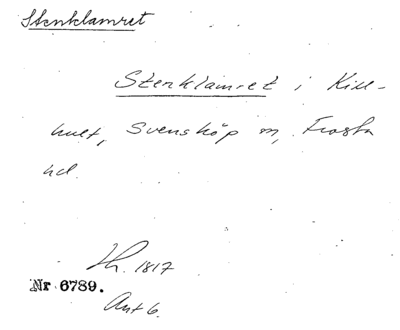 Stenklamret
Stenklamret i Kill-
hult, Svensköp sn, Frosta
hd.
Th. 1817
Nr 6789.
Ant 6.